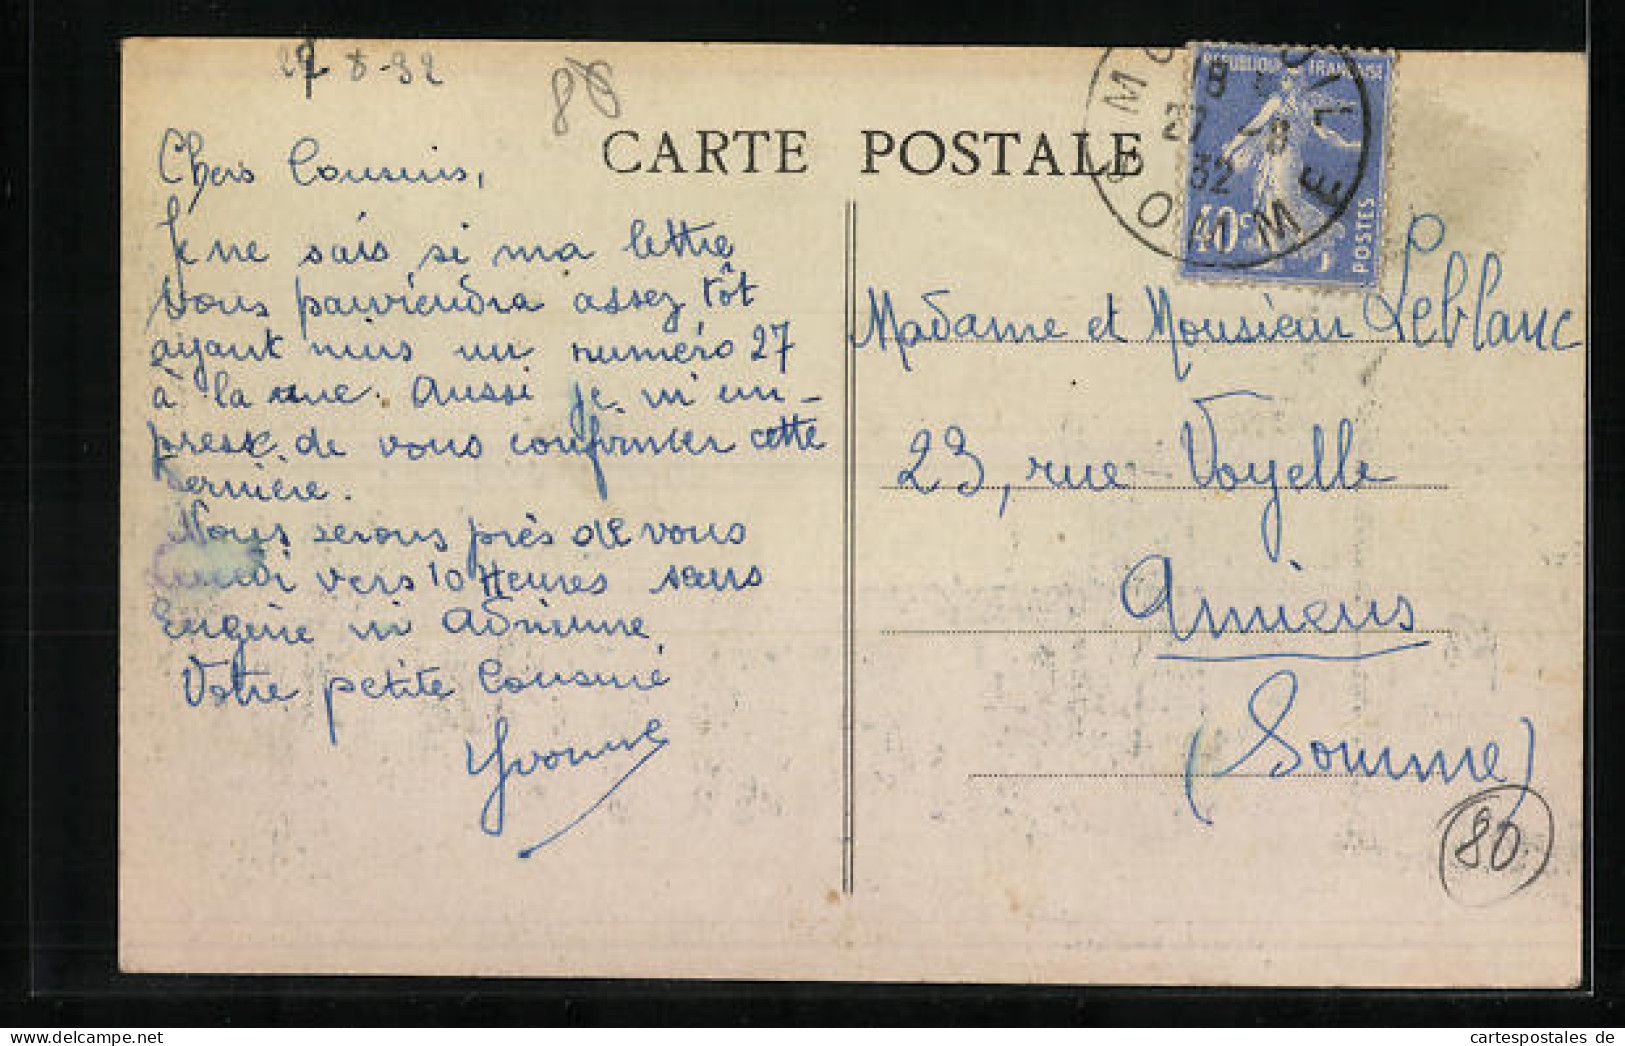 27-8-32
80
Chers Cousins,
Je ne sais si ma lettre
vous parviendra assez tôt
ayant mis un numéro 27
à la rue. Aussi je m'em-
presse de vous confirmer cette
dernière.
Nous serons près de vous
Lundi vers 10 Heures sans
Eugène ni Adrienne.
Votre petite Cousine
Yvonne
CARTE POSTALE
RÉPUBLIQUE FRANÇAISE
40c
POSTES
27 -8
32
SOMME
Madame et Monsieur Leblanc
23, rue Voyelle
Amiens
(Somme)
80
cartespostales de